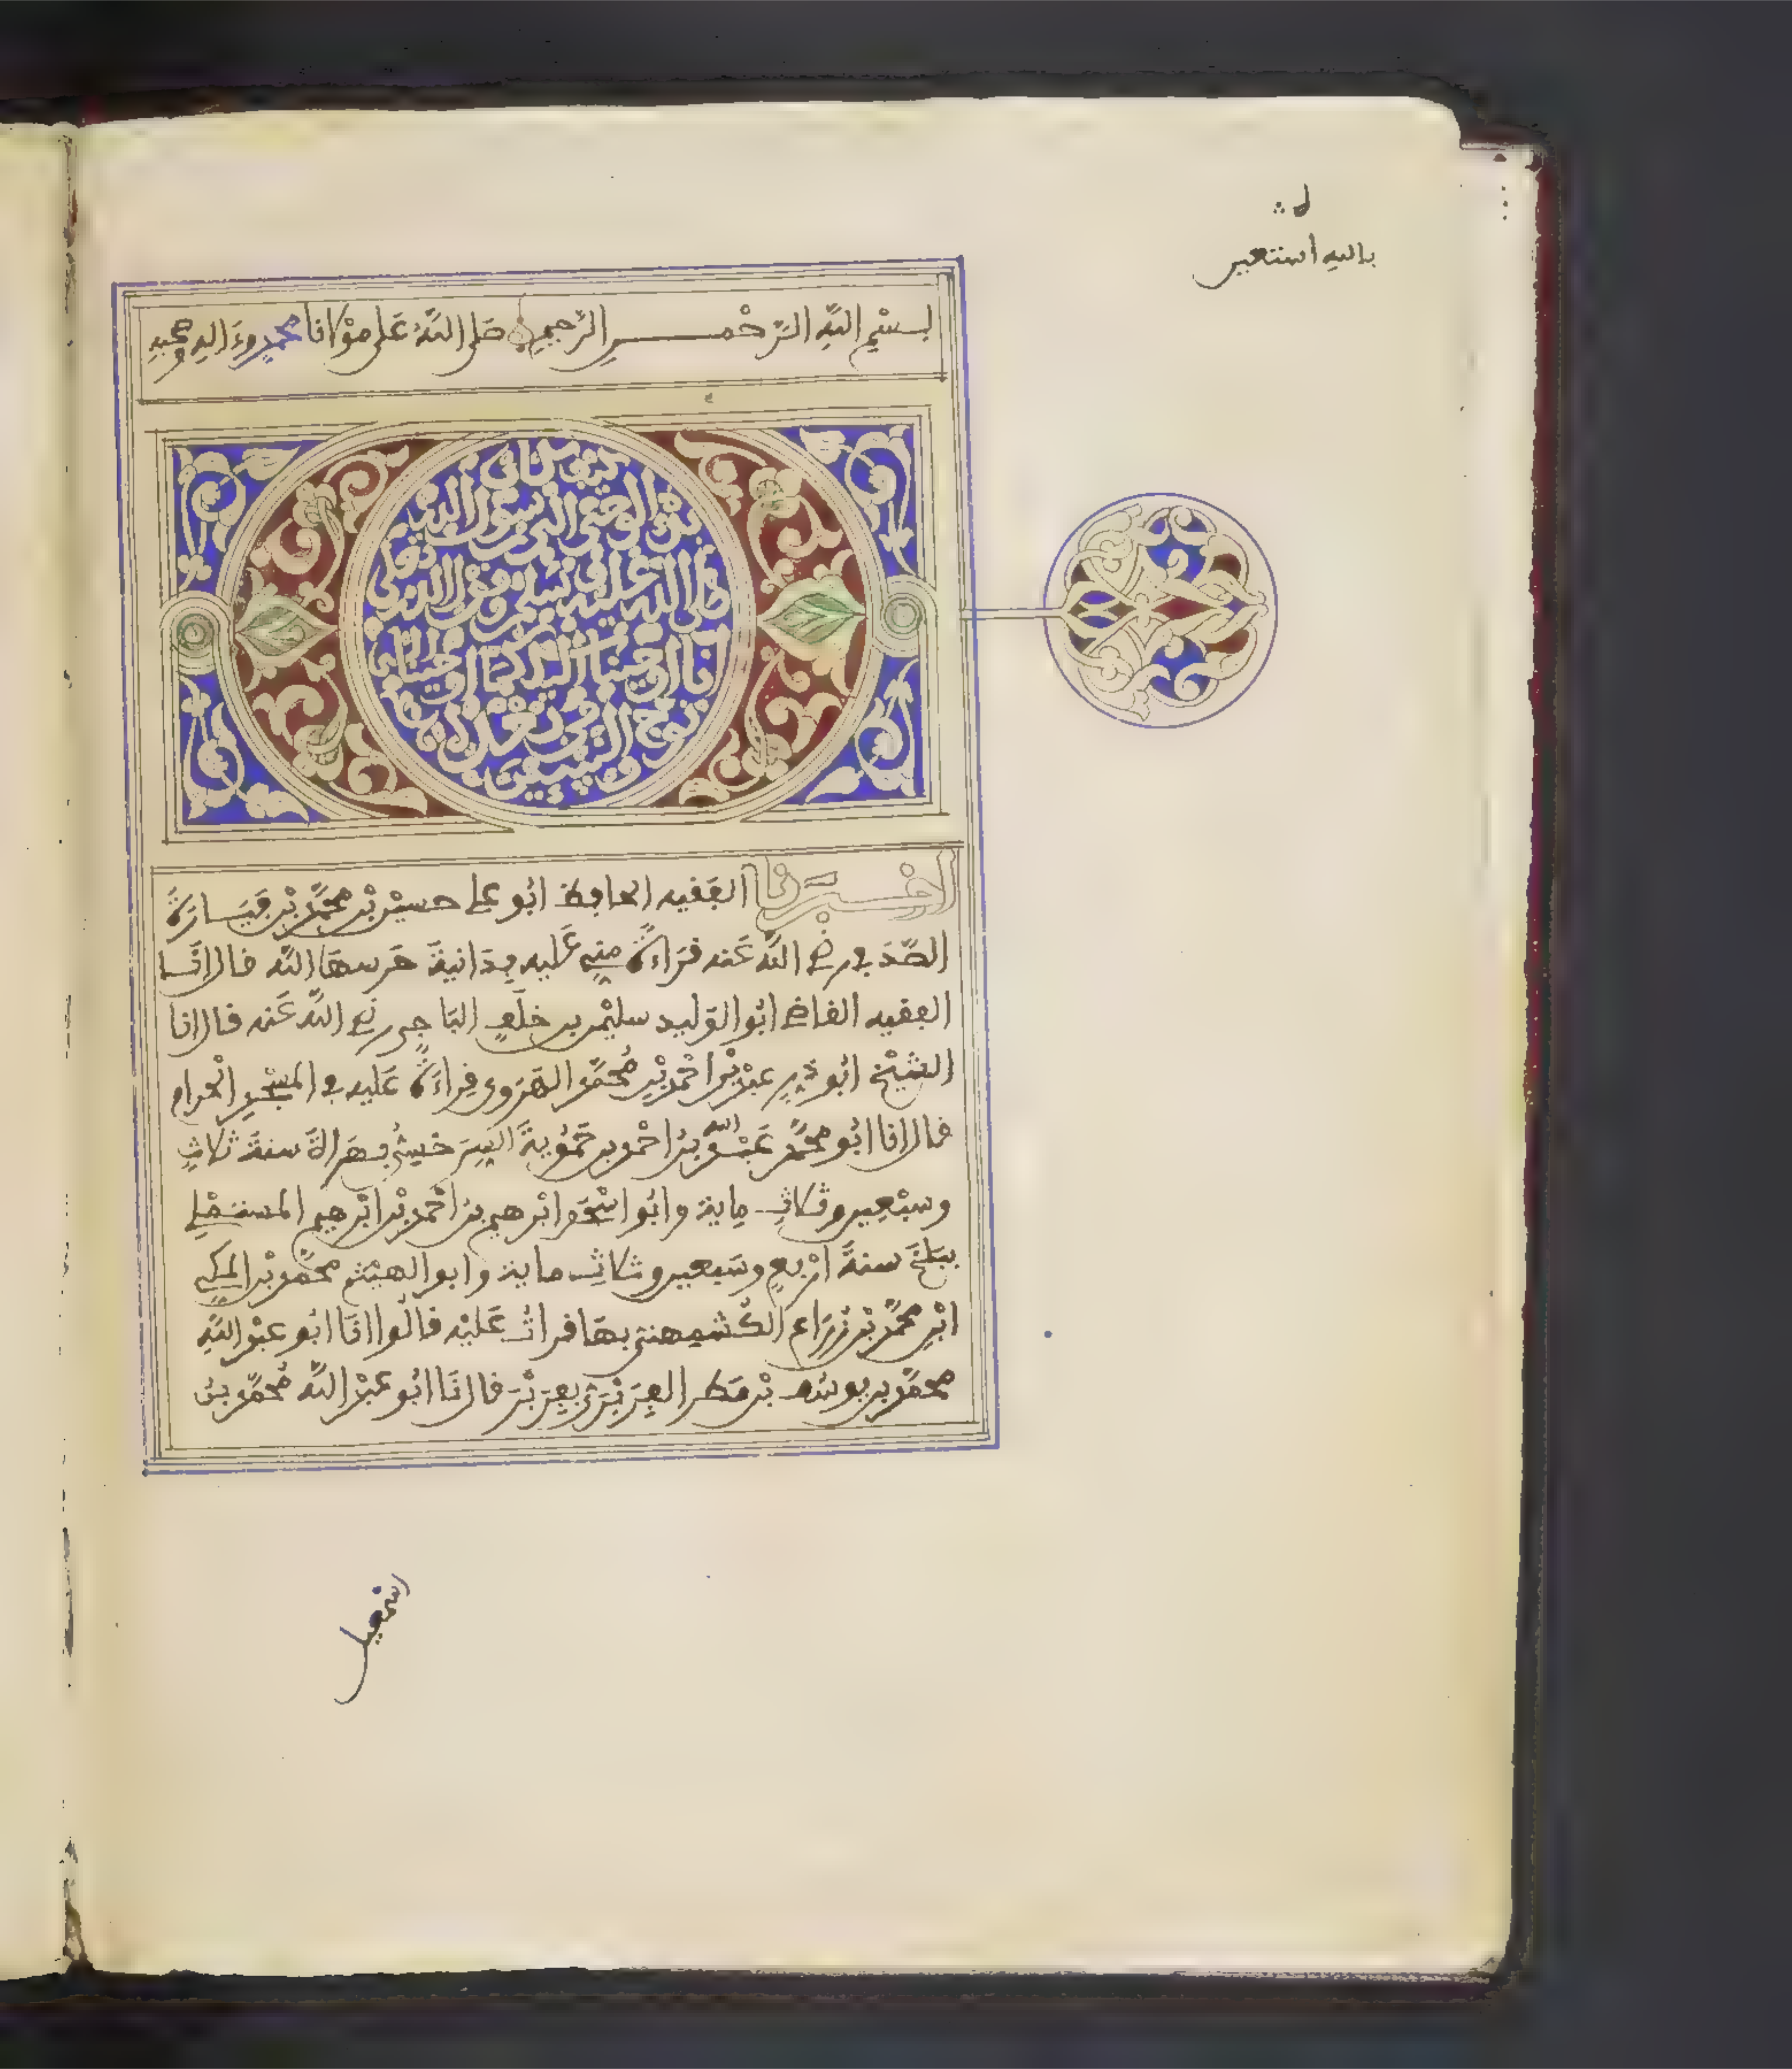 بالله استعين
بِسْمِ اللَّهِ الرَّحْمٰنِ الرَّحِيمِ صَلى اللَّهُ عَلى مَوْلانَا مُحَمدٍ وَءَالِهِ وصحبه
كيف كان
بدْءُ الوحي الى رسول الله
صلى الله عليه وسلم وقول الله تعالى
انا اوحينا اليك كما اوحينا الى
نوح والنبيين من بعده
اخبرنا الفَقيه الحافظ ابُو علي حسين بْن محمَّد بْن فِيَارُّةَ
الصَّدَفي رضي اللَّه عَنه قرَاءةً منِّي عَليه بِدَانية حَرسهَا اللَّه قال انَا
الفقيه القاضي ابُو الوَليد سليمٰن بن خلَفٍ البَاجي رضي اللَّه عَنه قال انا
الشَّيْخ ابُو ذَرٍّ عبدُ بْنُ احْمَد بْنِ مُحمَّد الهَرَوي قِراءَةً عَليه في المسْجِدِ الحَرام
قال انا ابُو محمَّد عَبْدُ الله بنُ احْمد بن حَمُّويَةَ السَّرَخْسِيُّ بهَرَاةَ سنةَ ثلاثٍ
وسبْعين وثلاثِ مِاية وابُو اسْحٰق ابْرهيم بن احْمد بْن ابْرهيم المستملي
ببَلْخَ سنةَ ارْبعٍ وسَبعين وثلاثِ ماية وابو الهيْثم محمّد بْن المكي
ابْنِ محمَّد بْنِ زُرَاعٍ الكُشْمِيهَني بهَا قراتُ عَليْه قالُوا انَا ابُو عبْد اللَّهِ
محمَّد بن يوسُف بْنِ مَطر الفِرَبْرِيُّ بفِرَبْرَ قال انَا ابُو عبْد اللَّه مُحمَّد بنُ
اسمعيل